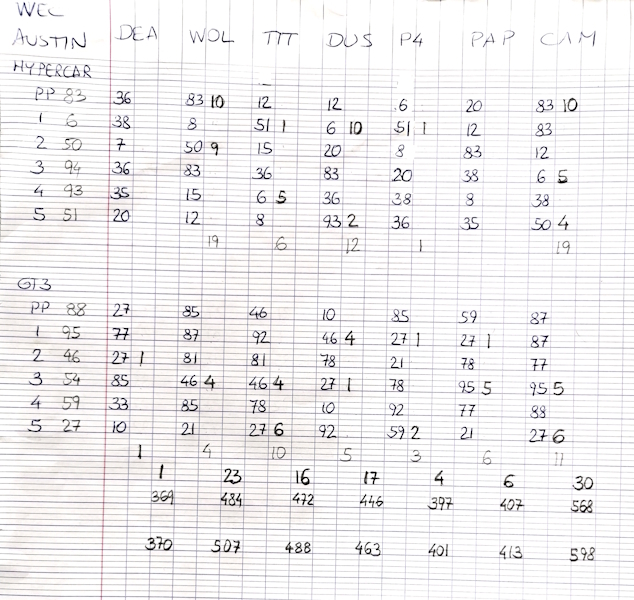 WEC
AUSTIN DEA WOL TTT DUS P4 PAP CAM
HYPERCAR
PP 83 36 83 10 12 12 6 20 83 10
1 6 38 8 51 1 6 10 51 1 12 83
2 50 7 50 9 15 20 8 83 12
3 94 36 83 36 83 20 38 6 5
4 93 35 15 6 5 36 38 8 38
5 51 20 12 8 93 2 36 35 50 4
19 6 12 1 19
GT3
PP 88 27 85 46 10 85 59 87
1 95 77 87 92 46 4 27 1 27 1 87
2 46 27 1 81 81 78 21 78 77
3 54 85 46 4 46 4 27 1 78 95 5 95 5
4 59 33 85 78 10 92 77 88
5 27 10 21 27 6 92 59 2 21 27 6
1 4 10 5 3 6 11
1 23 16 17 4 6 30
369 484 472 446 397 407 568
370 507 488 463 401 413 598